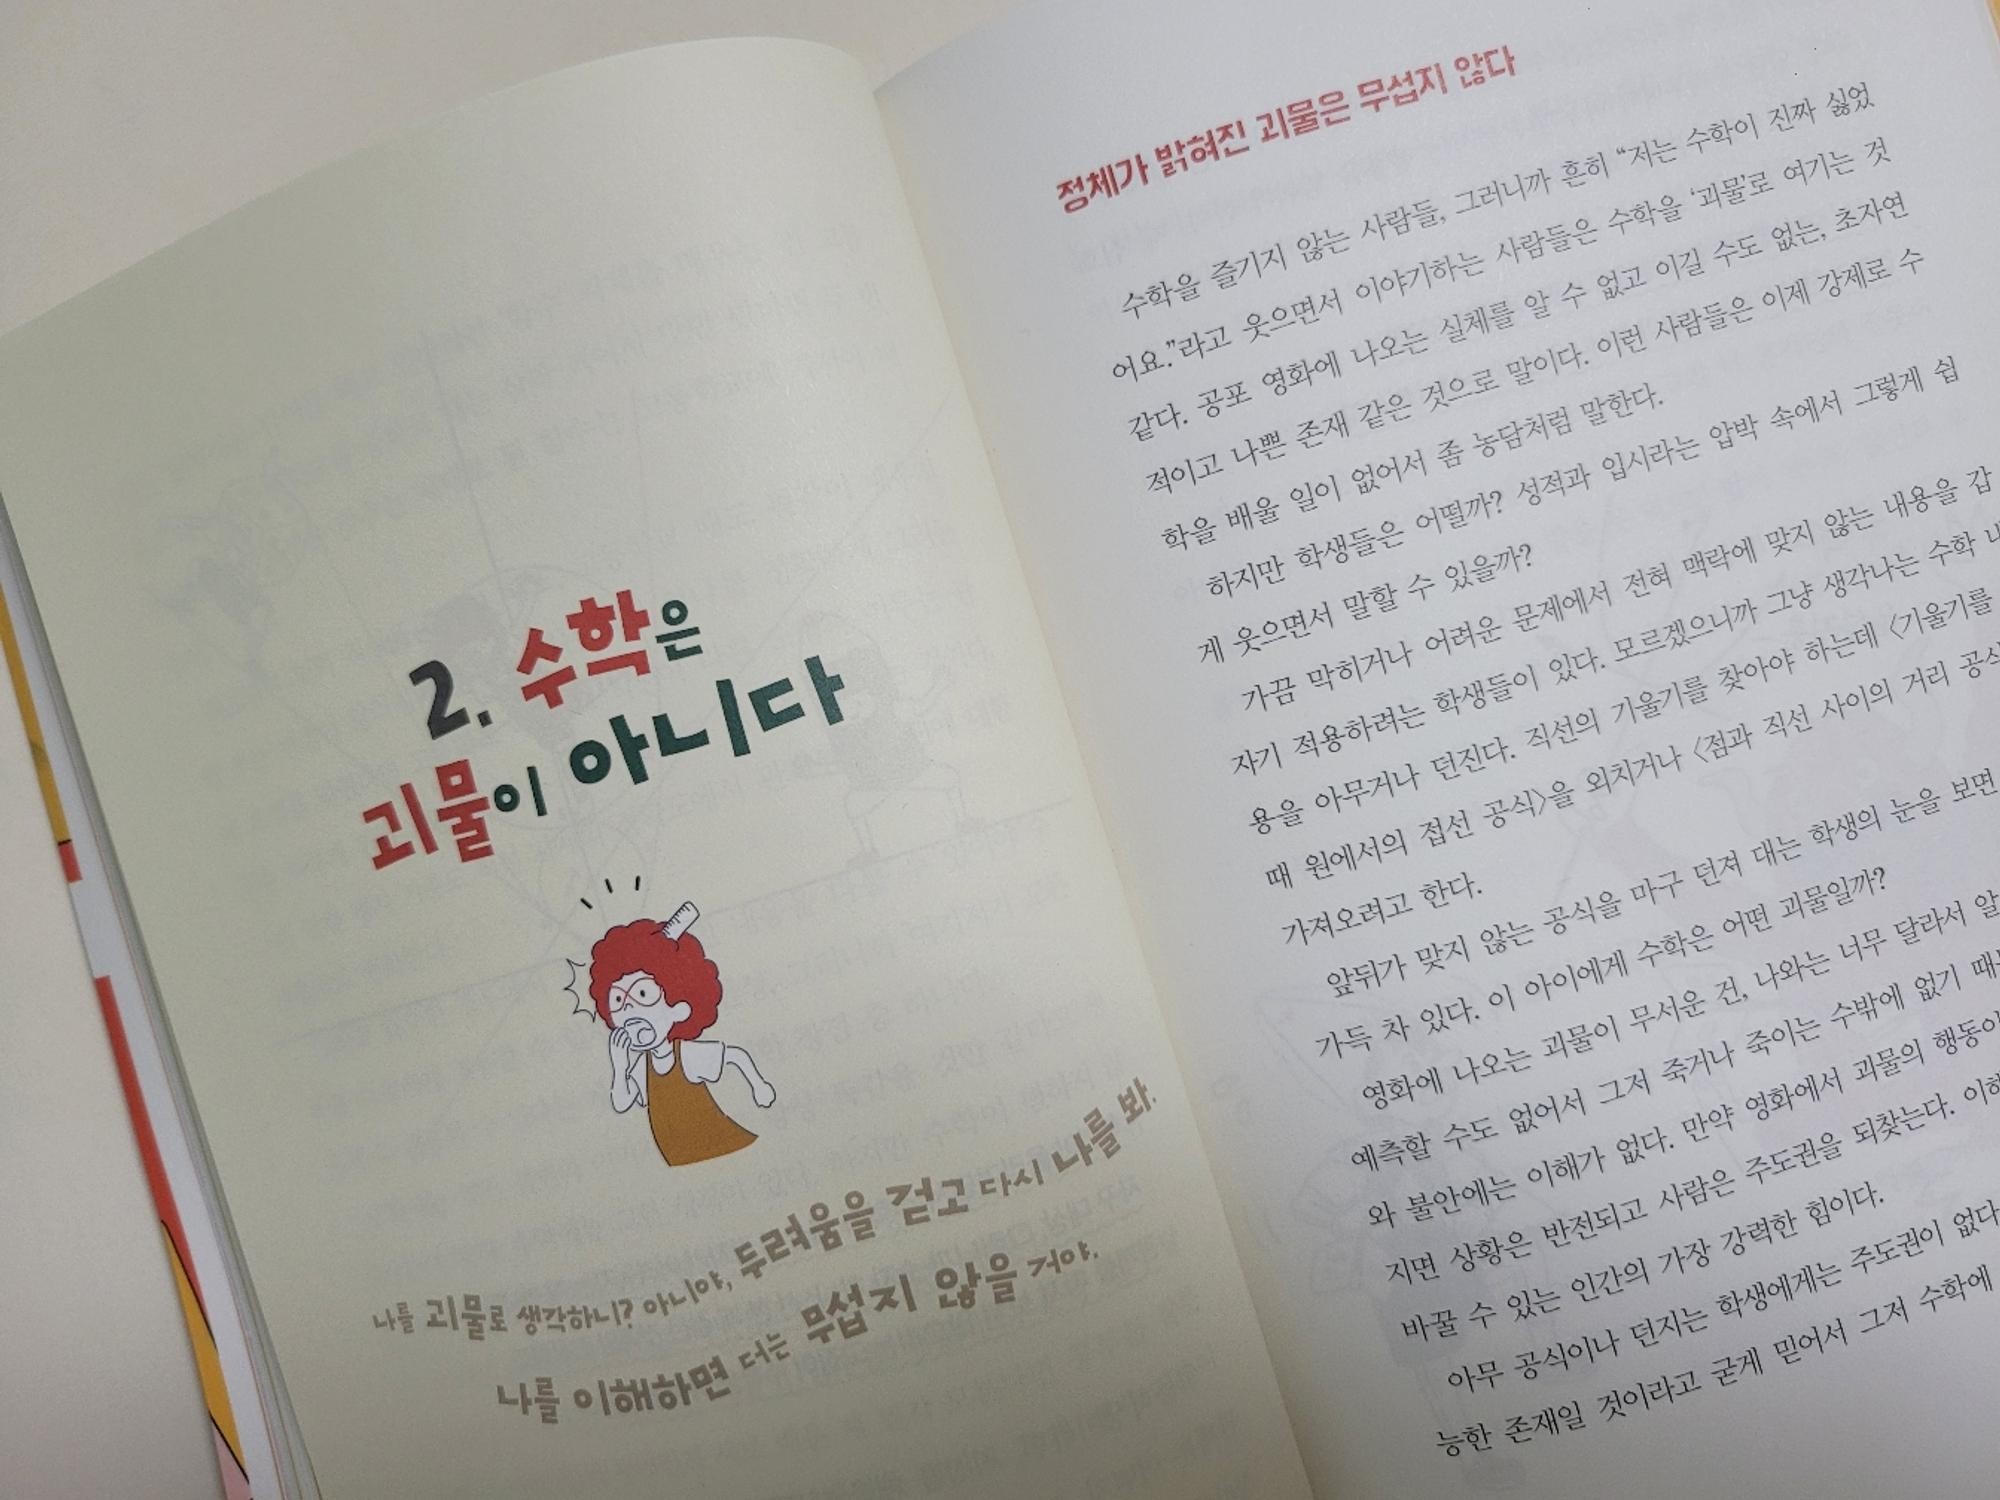 2. 수학은
괴물이 아니다
나를 괴물로 생각하니? 아니야, 두려움을 걷고 다시 나를 봐.
나를 이해하면 더는 무섭지 않을 거야.
정체가 밝혀진 괴물은 무섭지 않다
수학을 즐기지 않는 사람들, 그러니까 흔히 “저는 수학이 진짜 싫었
어요.”라고 웃으면서 이야기하는 사람들은 수학을 ‘괴물’로 여기는 것
같다. 공포 영화에 나오는 실체를 알 수 없고 이길 수도 없는, 초자연
적이고 나쁜 존재 같은 것으로 말이다. 이런 사람들은 이제 강제로 수
학을 배울 일이 없어서 좀 농담처럼 말한다.
하지만 학생들은 어떨까? 성적과 입시라는 압박 속에서 그렇게 쉽
게 웃으면서 말할 수 있을까?
가끔 막히거나 어려운 문제에서 전혀 맥락에 맞지 않는 내용을 갑
자기 적용하려는 학생들이 있다. 모르겠으니까 그냥 생각나는 수학 내
용을 아무거나 던진다. 직선의 기울기를 찾아야 하는데 〈기울기를
때 원에서의 접선 공식〉을 외치거나 〈점과 직선 사이의 거리 공식
가져오려고 한다.
앞뒤가 맞지 않는 공식을 마구 던져 대는 학생의 눈을 보면
가득 차 있다. 이 아이에게 수학은 어떤 괴물일까?
영화에 나오는 괴물이 무서운 건, 나와는 너무 달라서 알
예측할 수도 없어서 그저 죽거나 죽이는 수밖에 없기 때
와 불안에는 이해가 없다. 만약 영화에서 괴물의 행동이
지면 상황은 반전되고 사람은 주도권을 되찾는다. 이해
바꿀 수 있는 인간의 가장 강력한 힘이다.
아무 공식이나 던지는 학생에게는 주도권이 없다
능한 존재일 것이라고 굳게 믿어서 그저 수학에